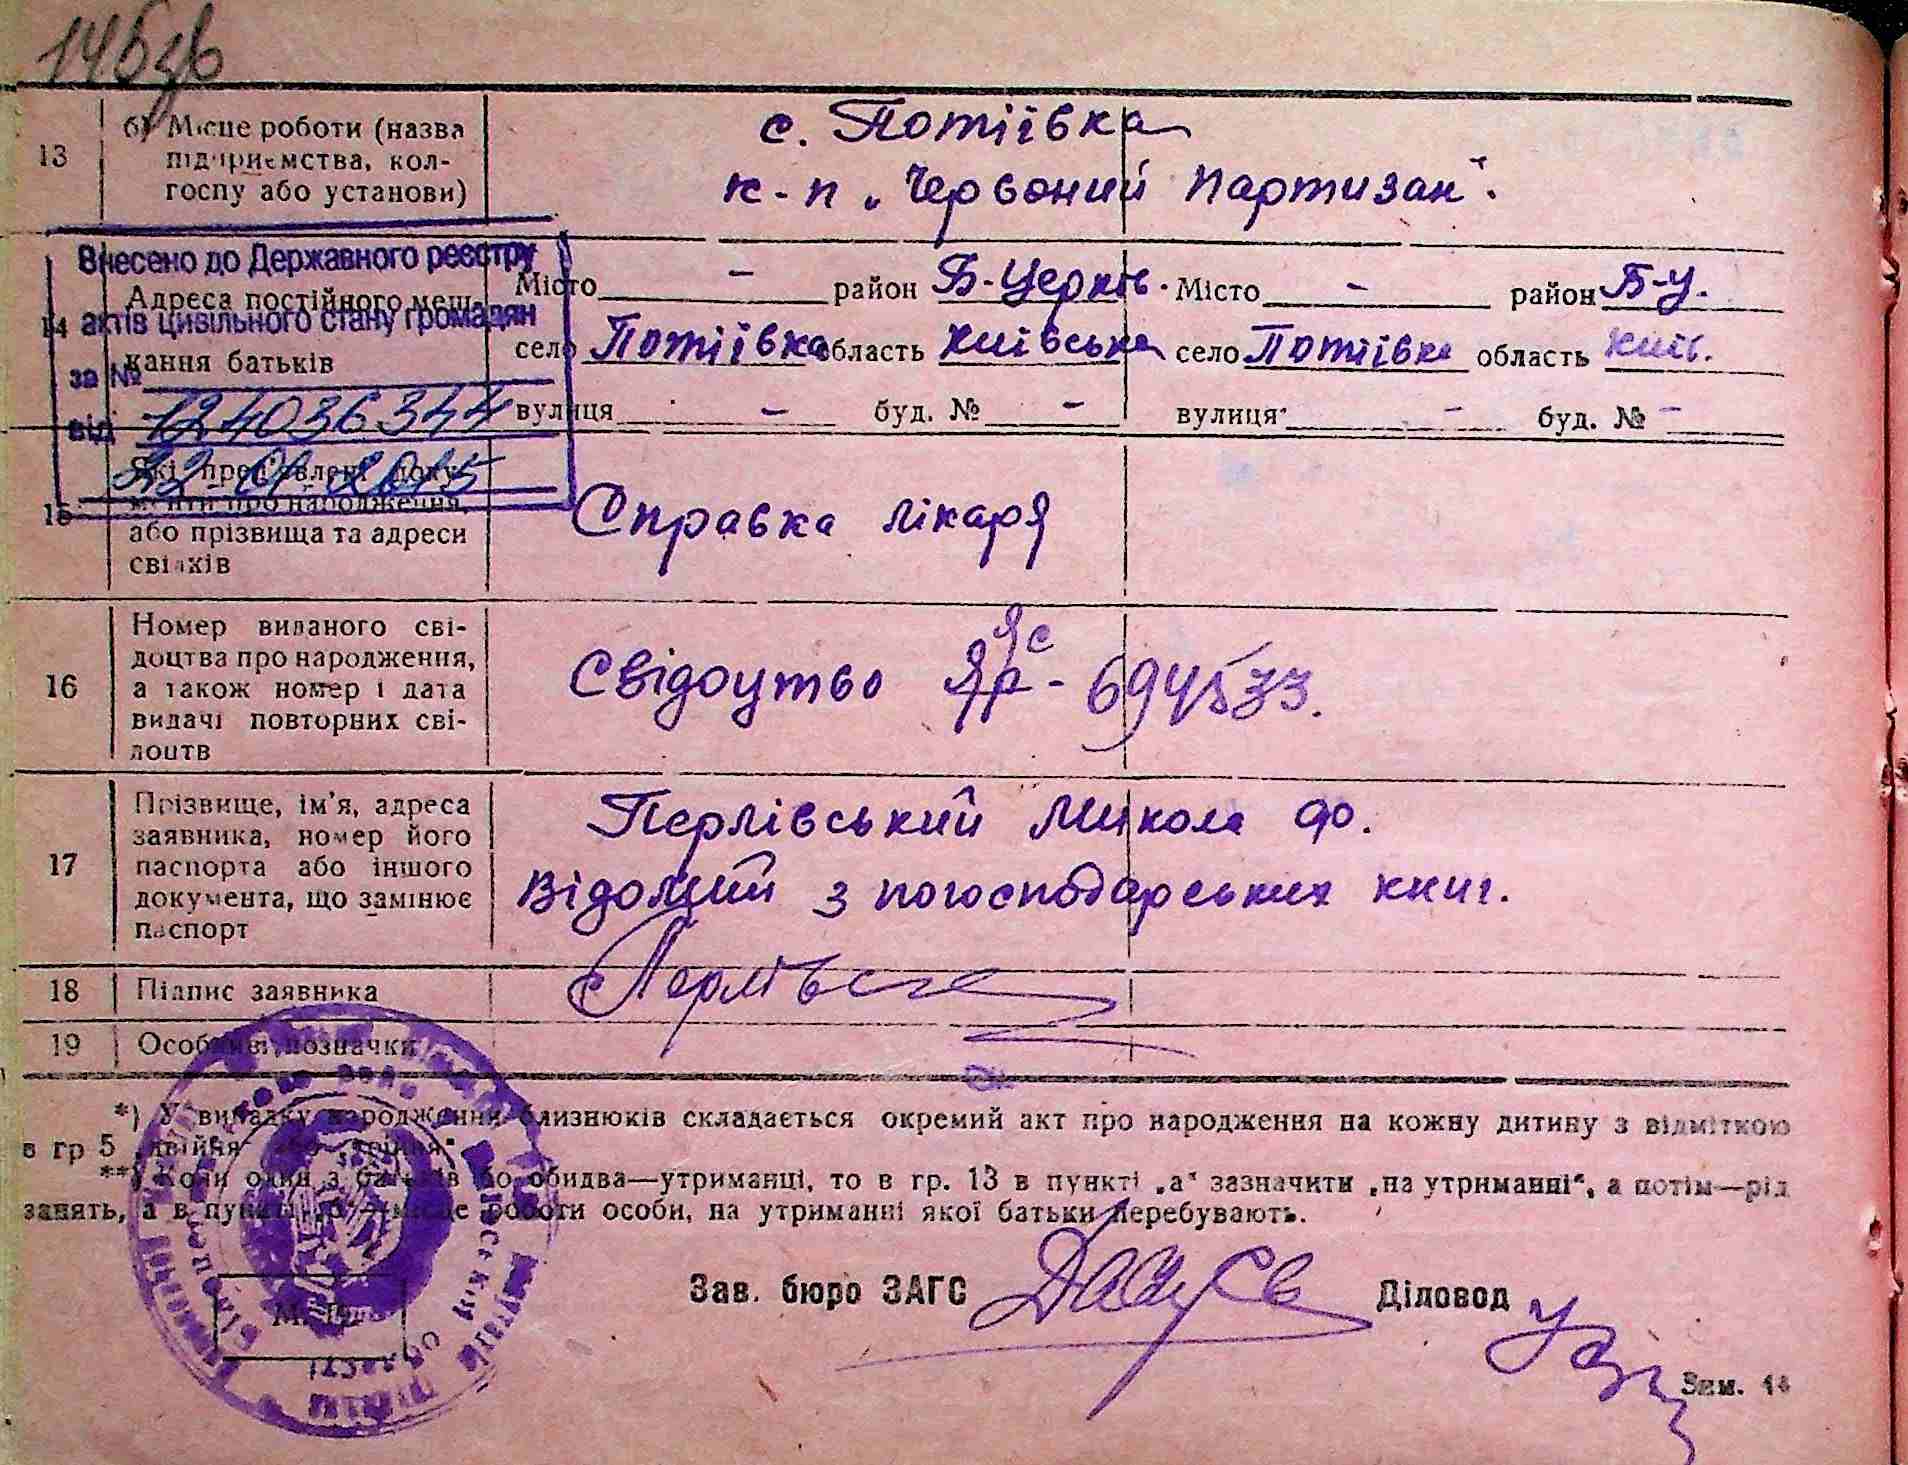 146зв
13
б) Місце роботи (назва
підприємства, кол-
госпу або установи)
с. Потіївка
к-п „Червоний партизан".
Внесено до Державного реєстру
актів цивільного стану громадян
за №
124036344
від
22-01-2015
14
Адреса постійного меш-
кання батьків
Місто - район Б-Церків. Місто - район Б-Ц.
село Потіївка область Київська село Потіївка область Київ.
вулиця - буд. № - вулиця - буд. № -
15
Які пред'явлені доку-
менти про народження,
або прізвища та адреси
свідків
Справка лікаря
16
Номер виданого сві-
доцтва про народження,
а також номер і дата
видачі повторних сві-
доцтв
ЯС
Свідоцтво - 694533.
17
Прізвище, ім'я, адреса
заявника, номер його
паспорта або іншого
документа, що замінює
паспорт
Перлівський Микола Ф.
Відомий з погосподарських книг.
18 Підпис заявника
Перлівськ
19 Особливі позначки
*) У випадку народження близнюків складається окремий акт про народження на кожну дитину з відміткою
в гр 5 „двійня" або „трійня".
**) Коли один з батьків або обидва—утриманці, то в гр. 13 в пункті „а" зазначити „на утриманні", а потім—рід
занять, а в пункті „б" місце роботи особи, на утриманні якої батьки перебувають.
Зав. бюро ЗАГС
Діловод
М. П.
області
Зим. 14